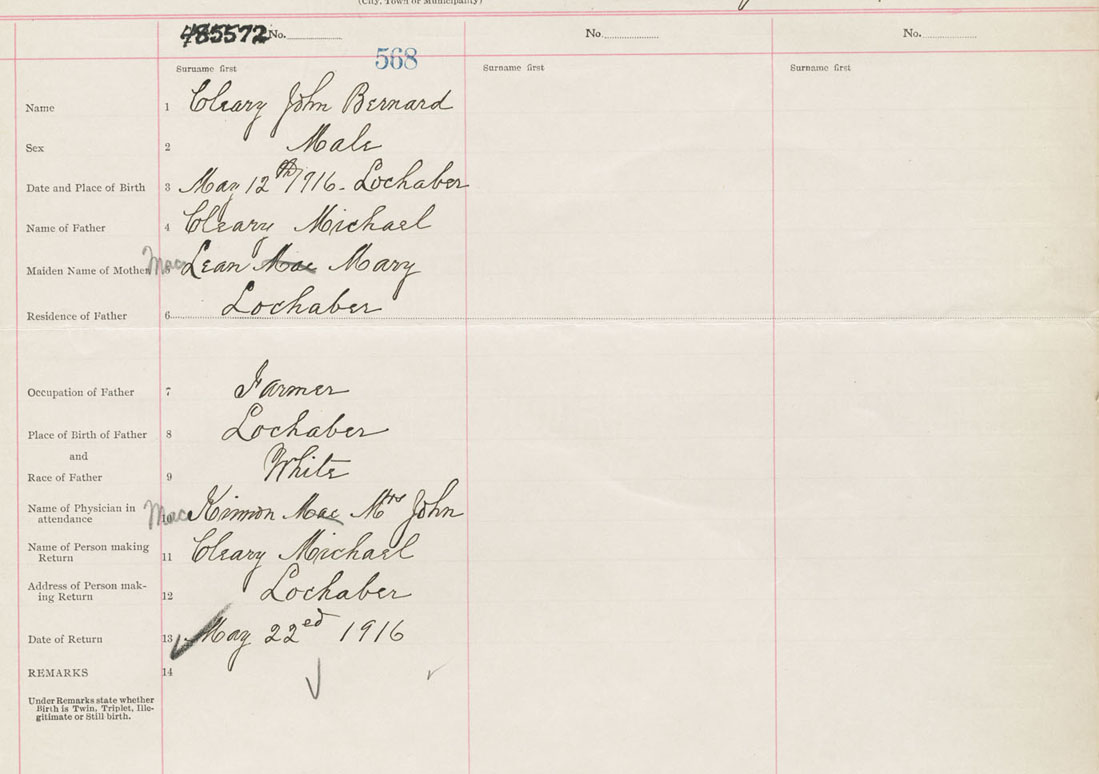 (City, Town or Municipality)
485572 No. No. No.
568
Surname first Surname first Surname first
Name 1 Cleary John Bernard
Sex 2 Male
Date and Place of Birth 3 May 12th 1916 - Lochaber
Name of Father 4 Cleary Michael
Maiden Name of Mother 5 Mac Lean Mac Mary
Residence of Father 6 Lochaber
Occupation of Father 7 Farmer
Place of Birth of Father 8 Lochaber
and
Race of Father 9 White
Name of Physician in
attendance 10 Mac Kinnon Mac Mrs John
Name of Person making
Return 11 Cleary Michael
Address of Person mak-
ing Return 12 Lochaber
Date of Return 13 May 22ed 1916
REMARKS 14
Under Remarks state whether
Birth is Twin, Triplet, Ille-
gitimate or Still birth.